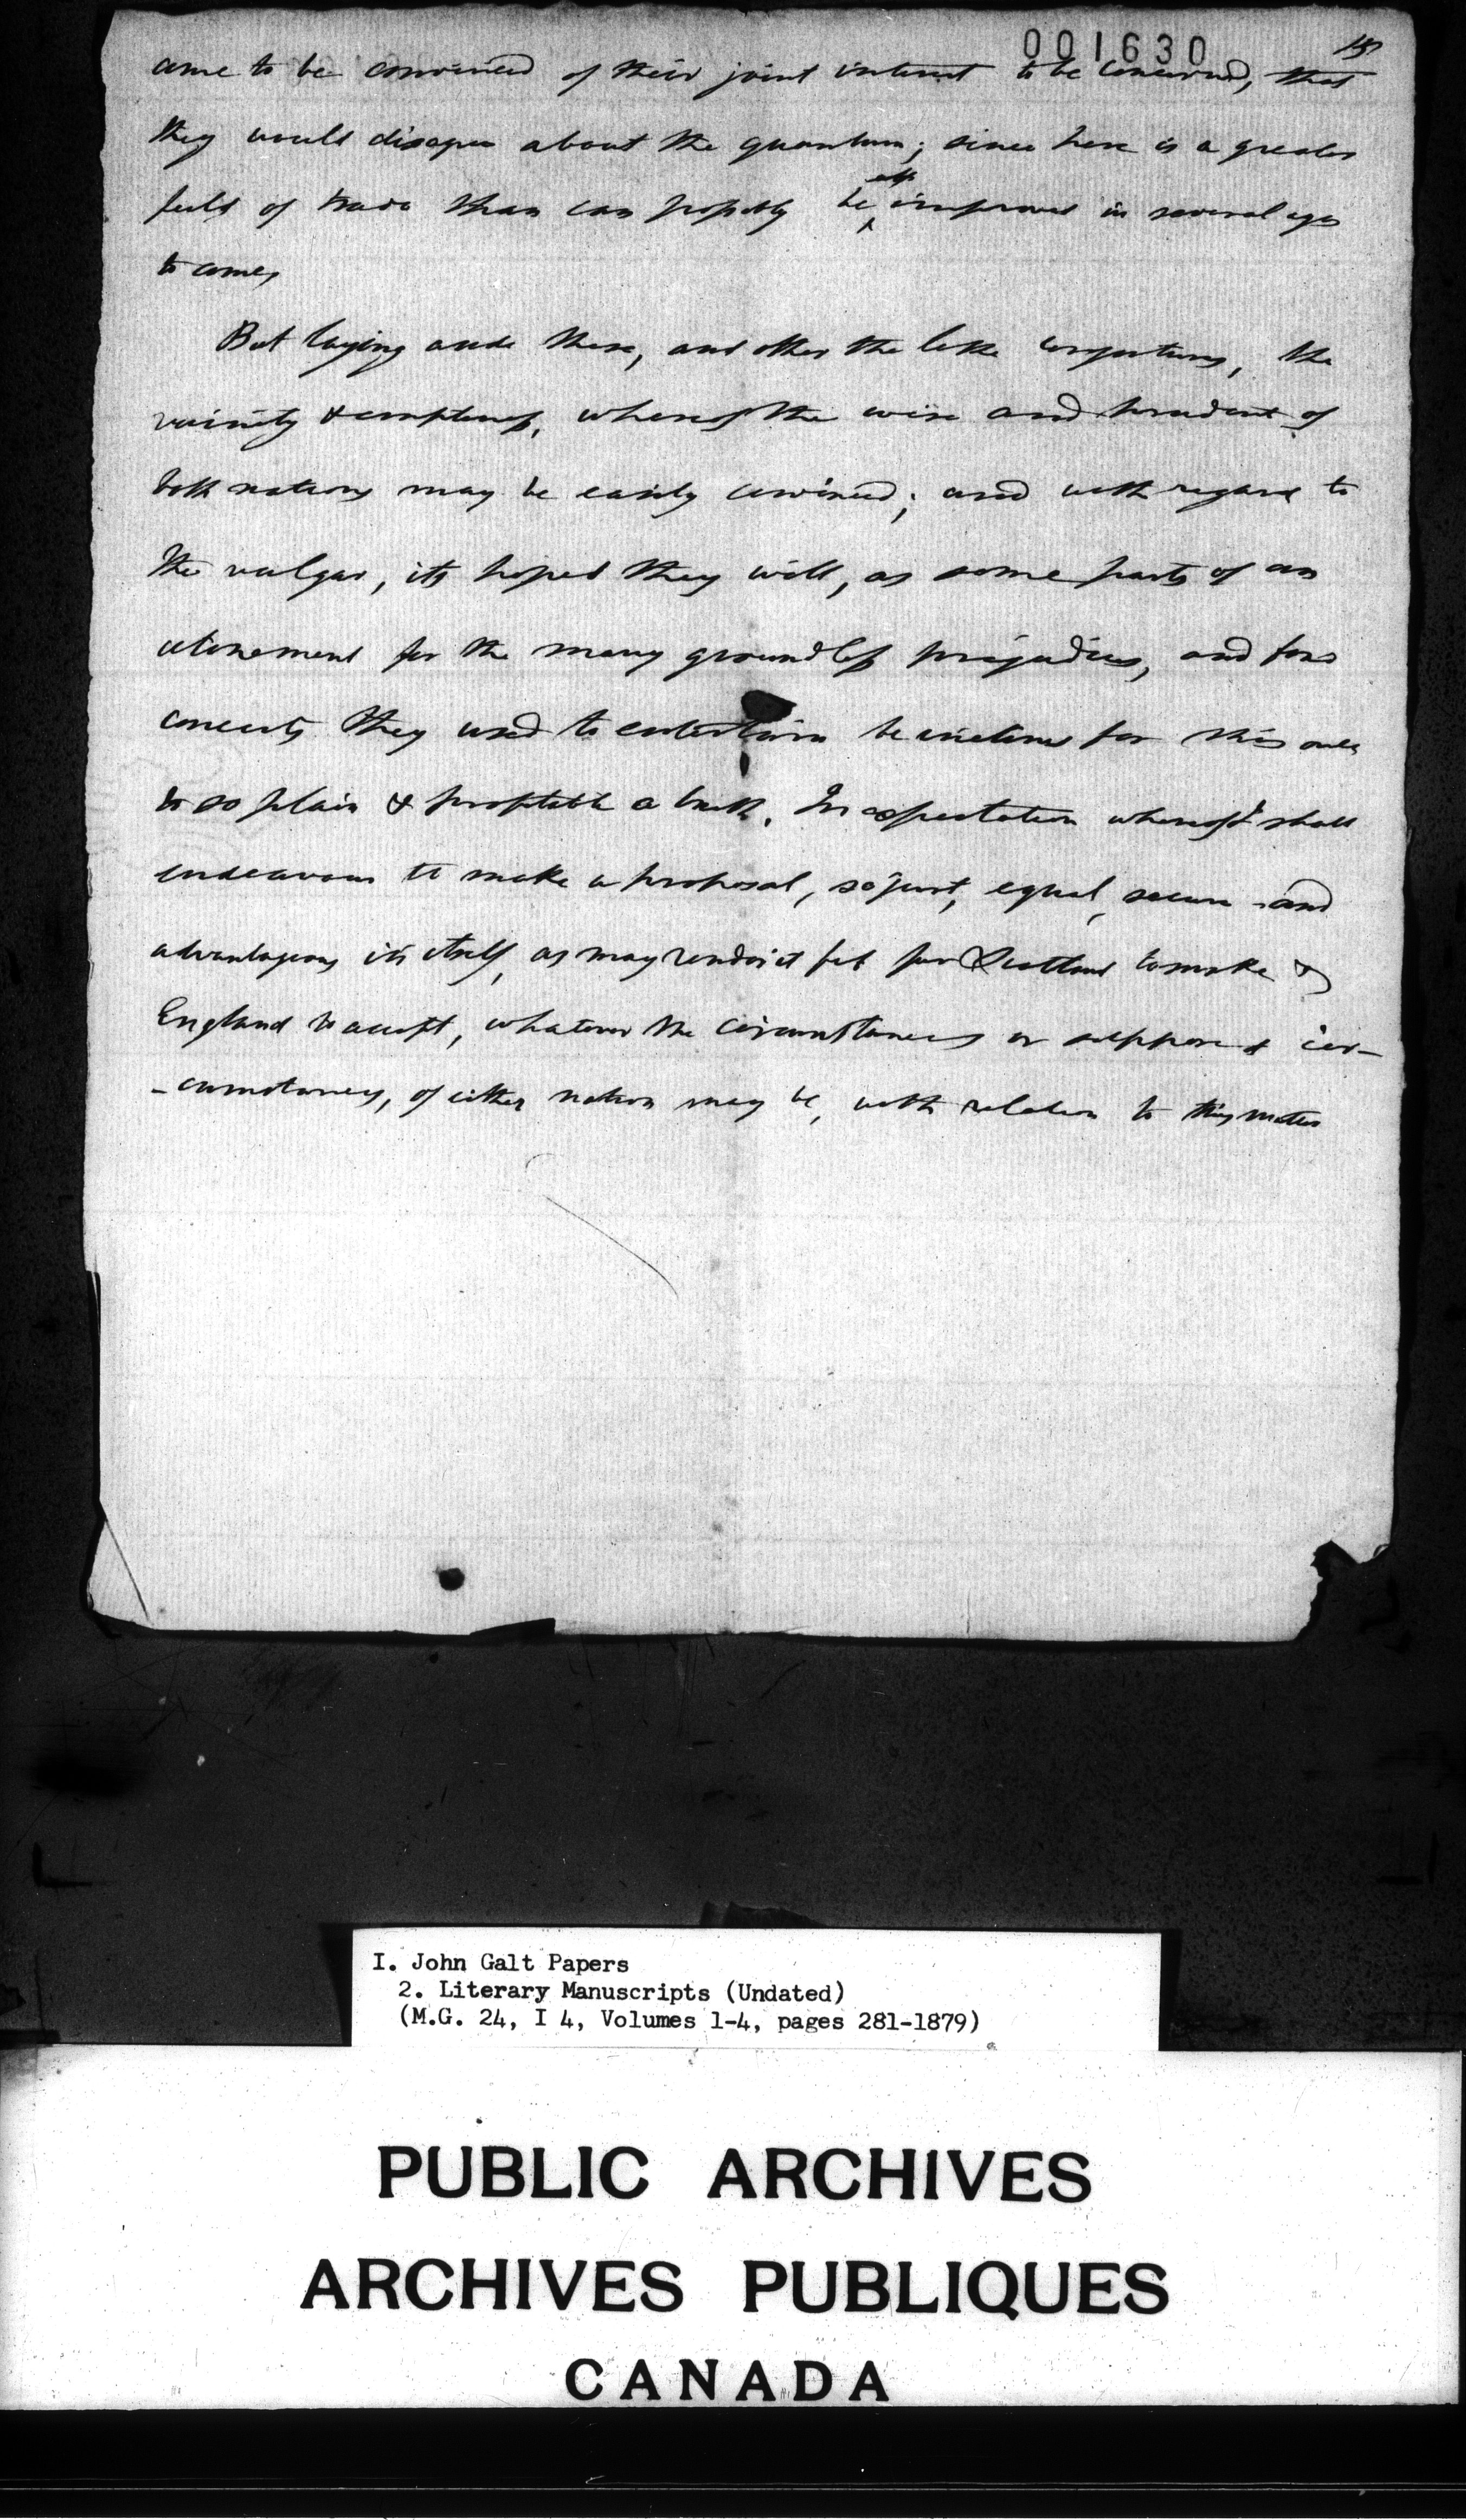 001630
151
came to be convinced of their joint interest to be concerned, that
they would disagree about the quantum; since here is a greater
field of trade than can possibly be all improved in several ages
to come,
But laying aside these, and other the like conjectures, the
vainity & emptiness, whereof the wise and prudent of
both nations may be easily convinced; and with regard to
the vulgar, its hoped they will, as some parts of an
atonement for the many groundless prejudices, and fond
conceits they used to entertain be victims for this once
to so plain & profitable a truth. In expectation whereof I shall
endeavour to make a proposal, so just, equal, secure and
advantageous in itself, as may render it fit for Scotland to make &
England to accept, whatever the circumstances or supposed cir-
-cumstances, of either nation may be, with relation to this matter
I. John Galt Papers
2. Literary Manuscripts (Undated)
(M.G. 24, I 4, Volumes 1-4, pages 281-1879)
PUBLIC ARCHIVES
ARCHIVES PUBLIQUES
CANADA